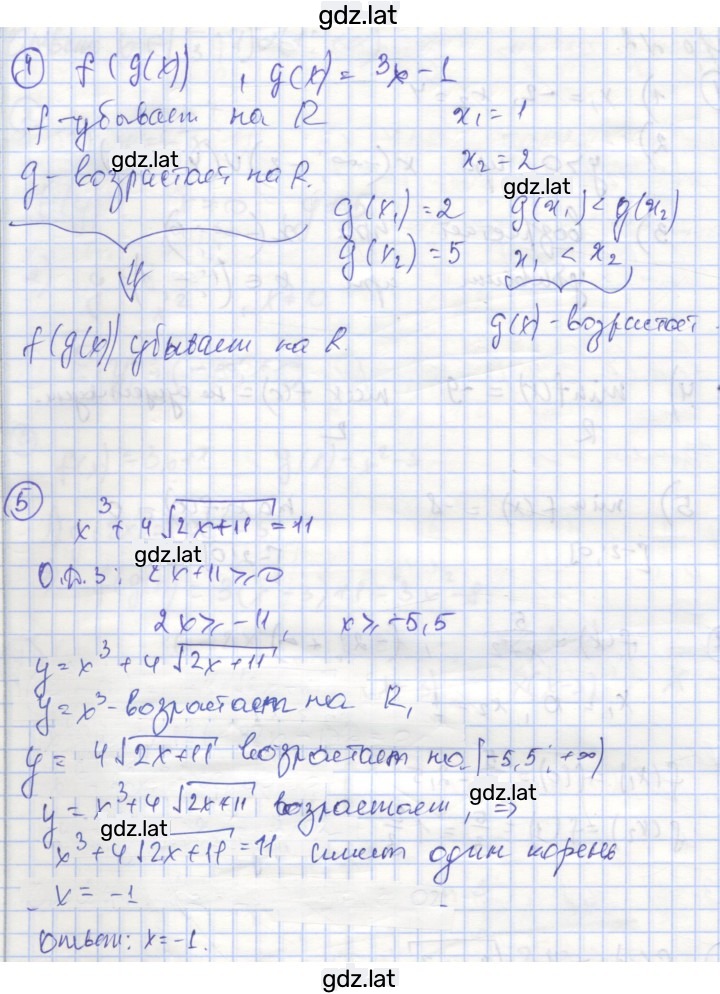 gdz.lat
④ f(g(x)), g(x) = 3x-1
f-убывает на R x₁ = 1
g- возрастает на R. x₂ = 2
gdz.lat
gdz.lat
g(x₁) = 2 g(x₁) < g(x₂)
g(x₂) = 5 x₁ < x₂
⇓
g(x)-возрастает
f(g(x)) убывает на R.
⑤ x³ + 4√(2x+11) = 11
gdz.lat
О.Д.З: 2x+11 ≥ 0
2x ≥ -11, x ≥ -5,5
y = x³ + 4√(2x+11)
y = x³ - возрастает на R,
y = 4√(2x+11) возрастает на [-5,5; +∞)
gdz.lat
y = x³+4√(2x+11) возрастает, ⇒
gdz.lat
x³+4√(2x+11) = 11 имеет один корень
x = -1
Ответ: x = -1.
gdz.lat